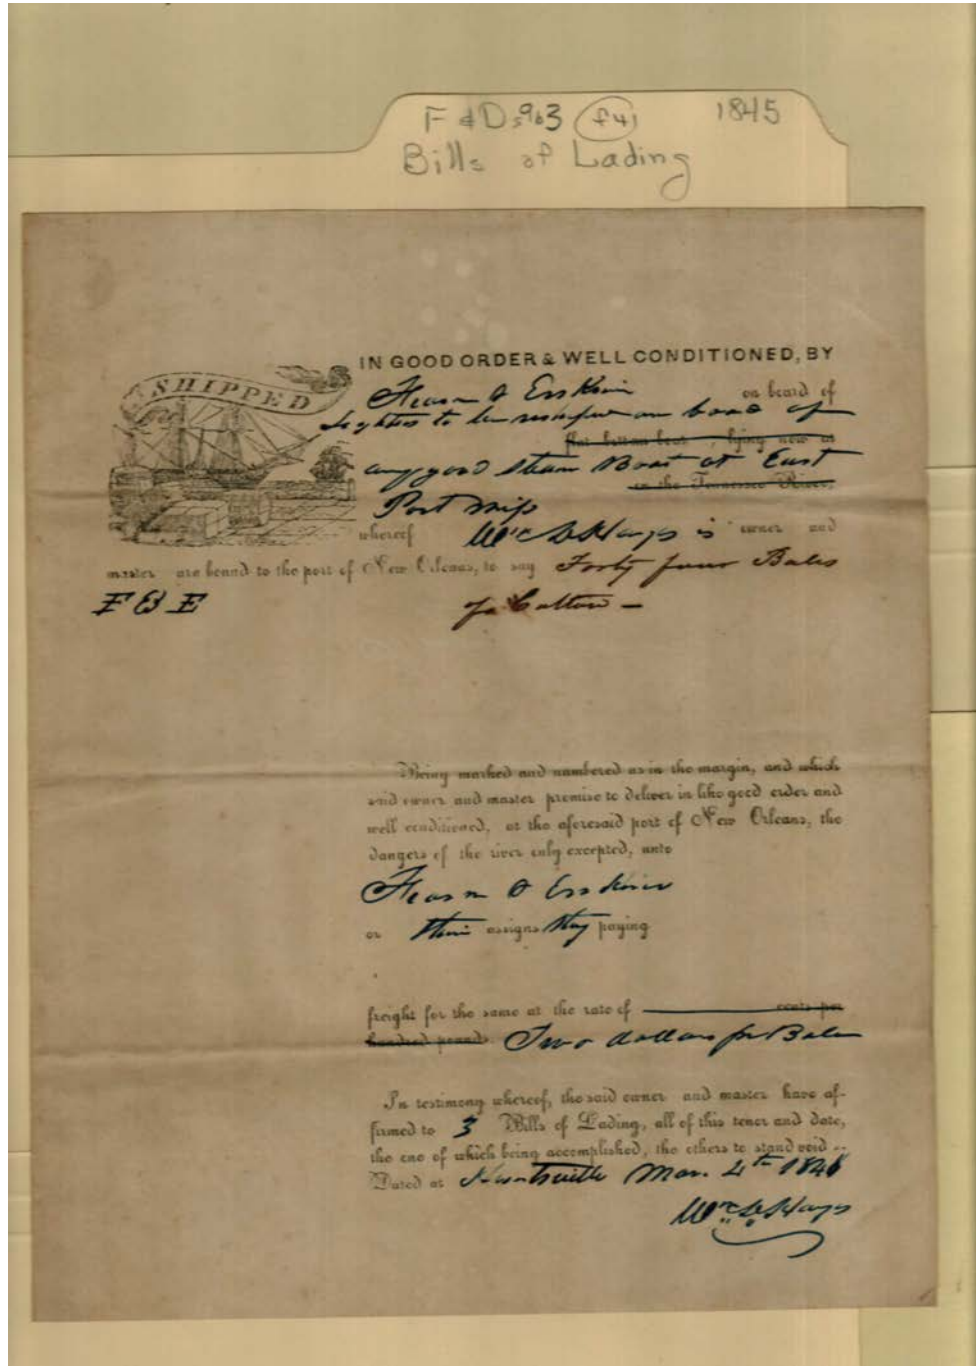 F & D 963 f41 1845
Bills of Lading
SHIPPED
IN GOOD ORDER & WELL CONDITIONED, BY
Fearn & Erskine on board of
Lighter to be on board of
flat bottom boat , lying now at
any good Steam Boat at East
in the Tennessee River,
Port Miss
whereof Wm Hays is owner and
master are bound to the port of New Orleans, to say Forty four Bales
F & E of Cotton —
Being marked and numbered as in the margin, and which
said owner and master promise to deliver in like good order and
well conditioned, at the aforesaid port of New Orleans, the
dangers of the river only excepted, unto
Fearn & Erskine
or their assigns they paying
freight for the same at the rate of cents per
hundred pounds. Two dollars per Bale
In testimony whereof, the said owner and master have af-
firmed to 3 Bills of Lading, all of this tenor and date,
the one of which being accomplished, the others to stand void --
Dated at Huntsville Mar. 4th
Wm Hays